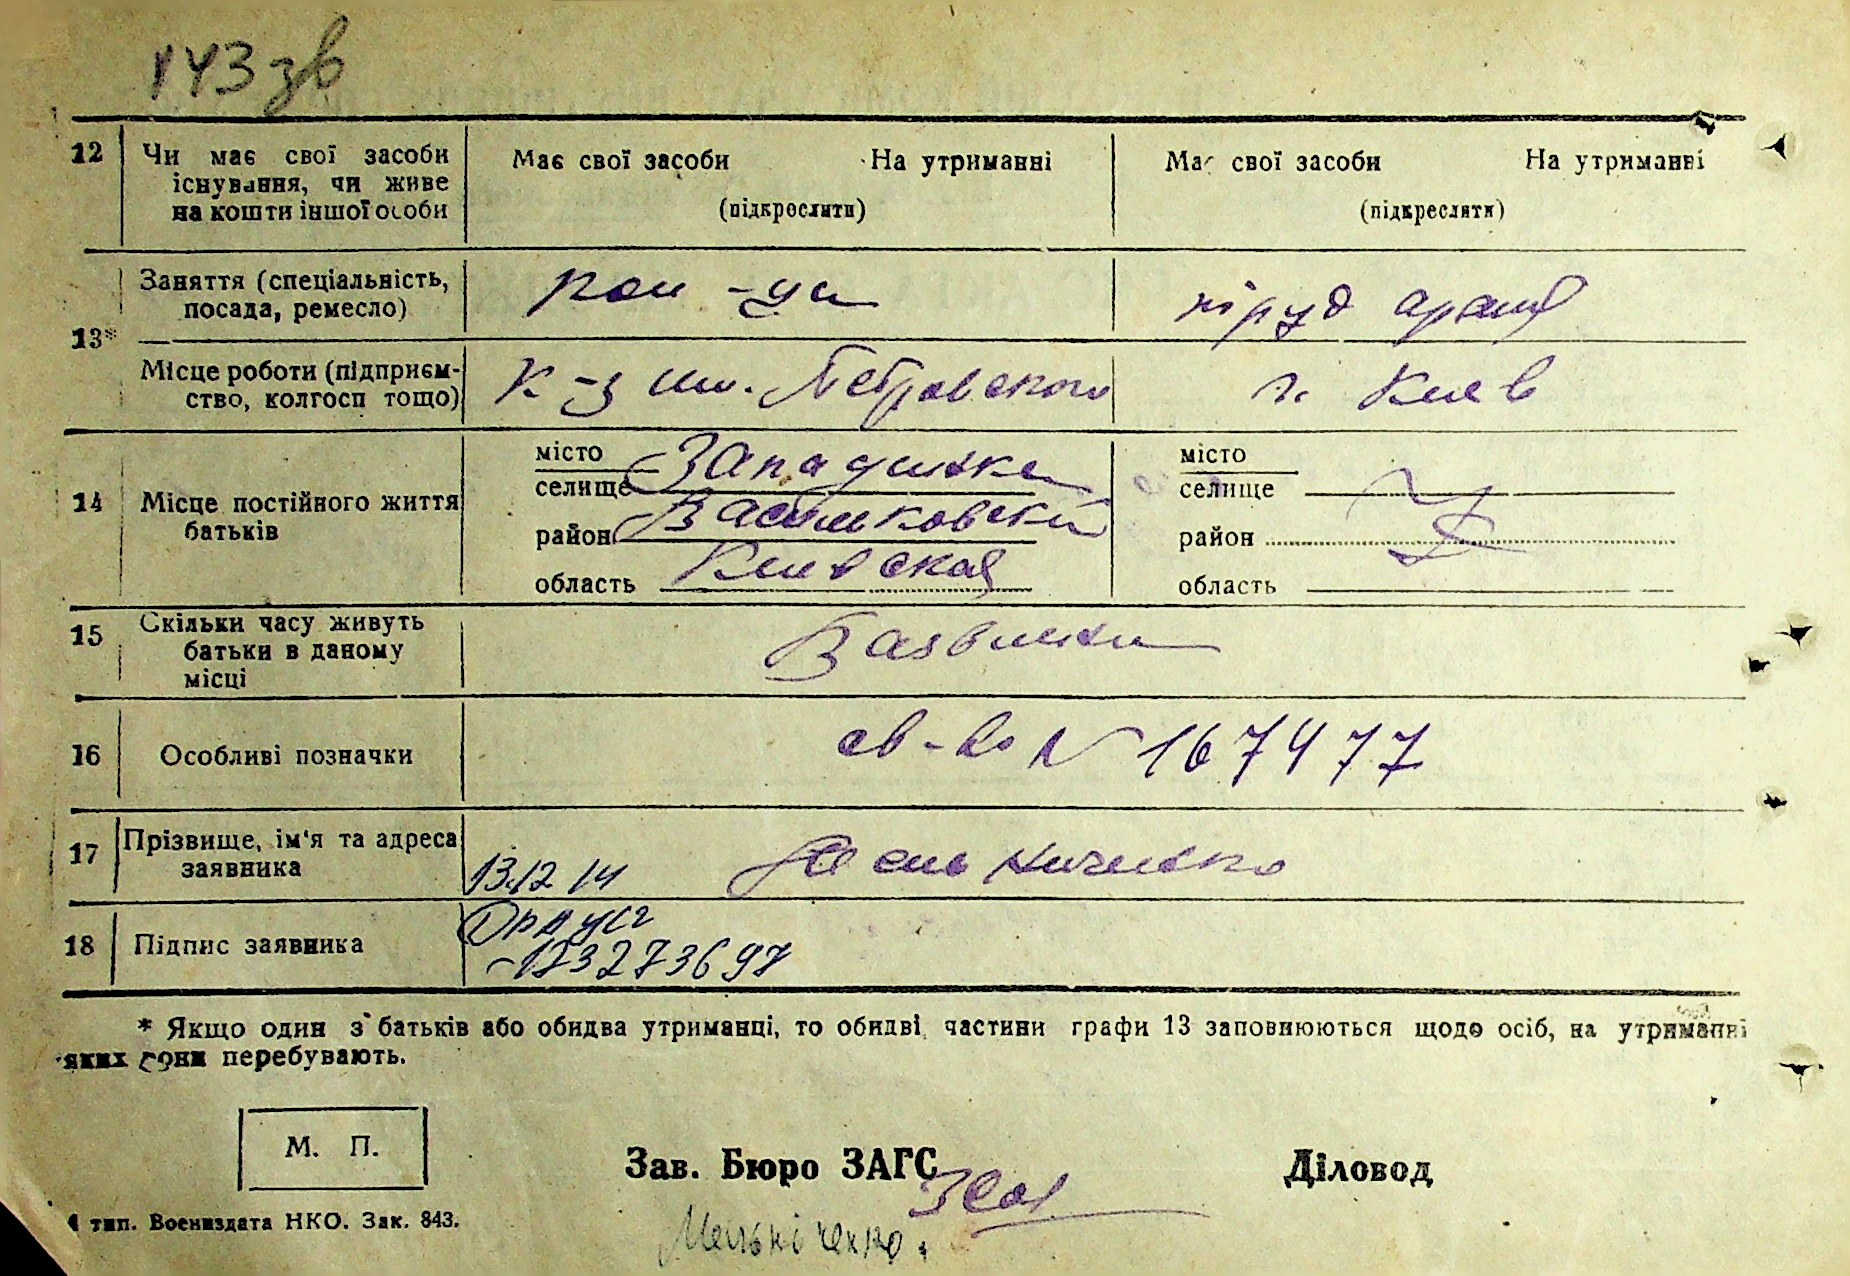 143 зв
12 Чи має свої засоби існування, чи живе на кошти іншої особи
Має свої засоби На утриманні
(підкреслити)
Має свої засоби На утриманні
(підкреслити)
13*
Заняття (спеціальність, посада, ремесло)
Місце роботи (підприємство, колгосп тощо)
К-з им. Петровского
г. Киев
14 Місце постійного життя батьків
місто
селище
район Васильковский
область Киевская
місто
селище
район
область
15 Скільки часу живуть батьки в даному місці
16 Особливі позначки
св-во N 167477
17 Прізвище, ім'я та адреса заявника
13.12 14
Мельниченко
18 Підпис заявника
173273697
* Якщо один з батьків або обидва утриманці, то обидві частини графи 13 заповнюються щодо осіб, на утриманні
яких вони перебувають.
М. П.
Зав. Бюро ЗАГС
Діловод
Мельніченко.
4 тип. Воениздата НКО. Зак. 843.